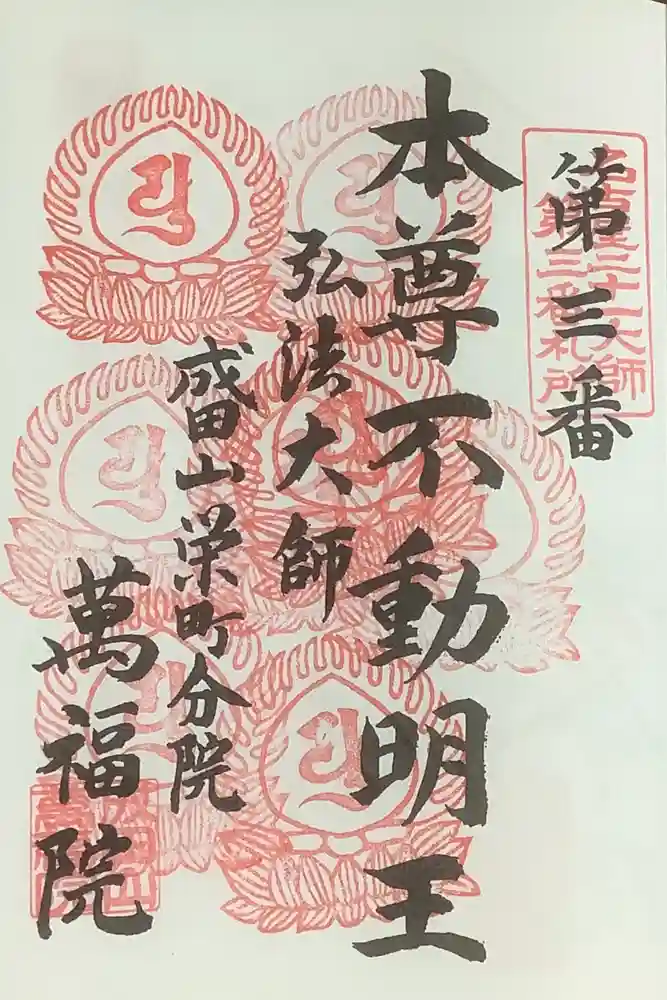 第三番
名古屋二十一大師
第三番札所
本尊不動明王
弘法大師
成田山栄町分院
萬福院